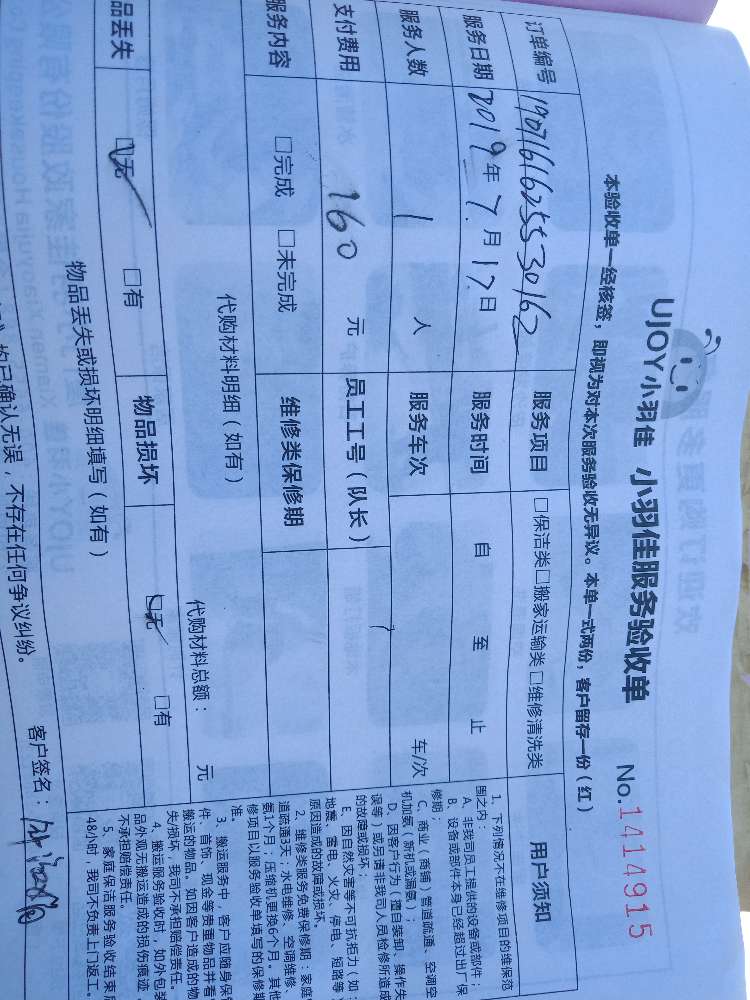 UJOY小羽佳 小羽佳服务验收单 No.1414915
本验收单一经核签，即视为对本次服务验收无异议。本单一式两份，客户留存一份（红）
订单编号 1907161625530162 服务项目 □保洁类□搬家运输类□维修清洗类 用户须知
服务日期 2019年7月17日 服务时间 自 至 止
服务人数 1 人 服务车次 车/次
支付费用 160 元 员工工号（队长）
服务内容 □完成 □未完成 维修类保修期
代购材料明细（如有） 代购材料总额： 元
品丢失 □无 □有 物品损坏 □无 □有
物品丢失或损坏明细填写（如有）
均已确认无误，不存在任何争议纠纷。 客户签名：
1、下列情况不在维修项目的维保范
围之内：
A、非我司员工提供的设备或部件；
B、设备或部件本身已经超过出厂保
修期；
C、商业（商铺）管道疏通、空调空
机加氨（新机或漏氨）；
D、因客户行为（擅自装卸、操作失
误等）或另请非我司人员检修所造成
的故障或损坏；
E、因自然灾害等不可抗拒力（如：
地震、雷电、火灾、停电、短路等
原因造成的故障或损坏。
2、维修类服务免费保修期：家庭
道疏通3天；水电维修、空调维修、
氨1个月；压缩机更换6个月。其他
修项目以服务验收单填写的保修期
准。
3、搬运服务中，客户应随身保
件、首饰、现金等贵重物品并看
搬运的物品，如因客户造成的物
失/损坏，我司不承担赔偿责任。
4、搬运服务验收时，如外包装
品外观无搬运造成的损伤痕迹，
不承担赔偿责任。
5、家庭保洁服务验收结束后
48小时，我司不负责上门返工。